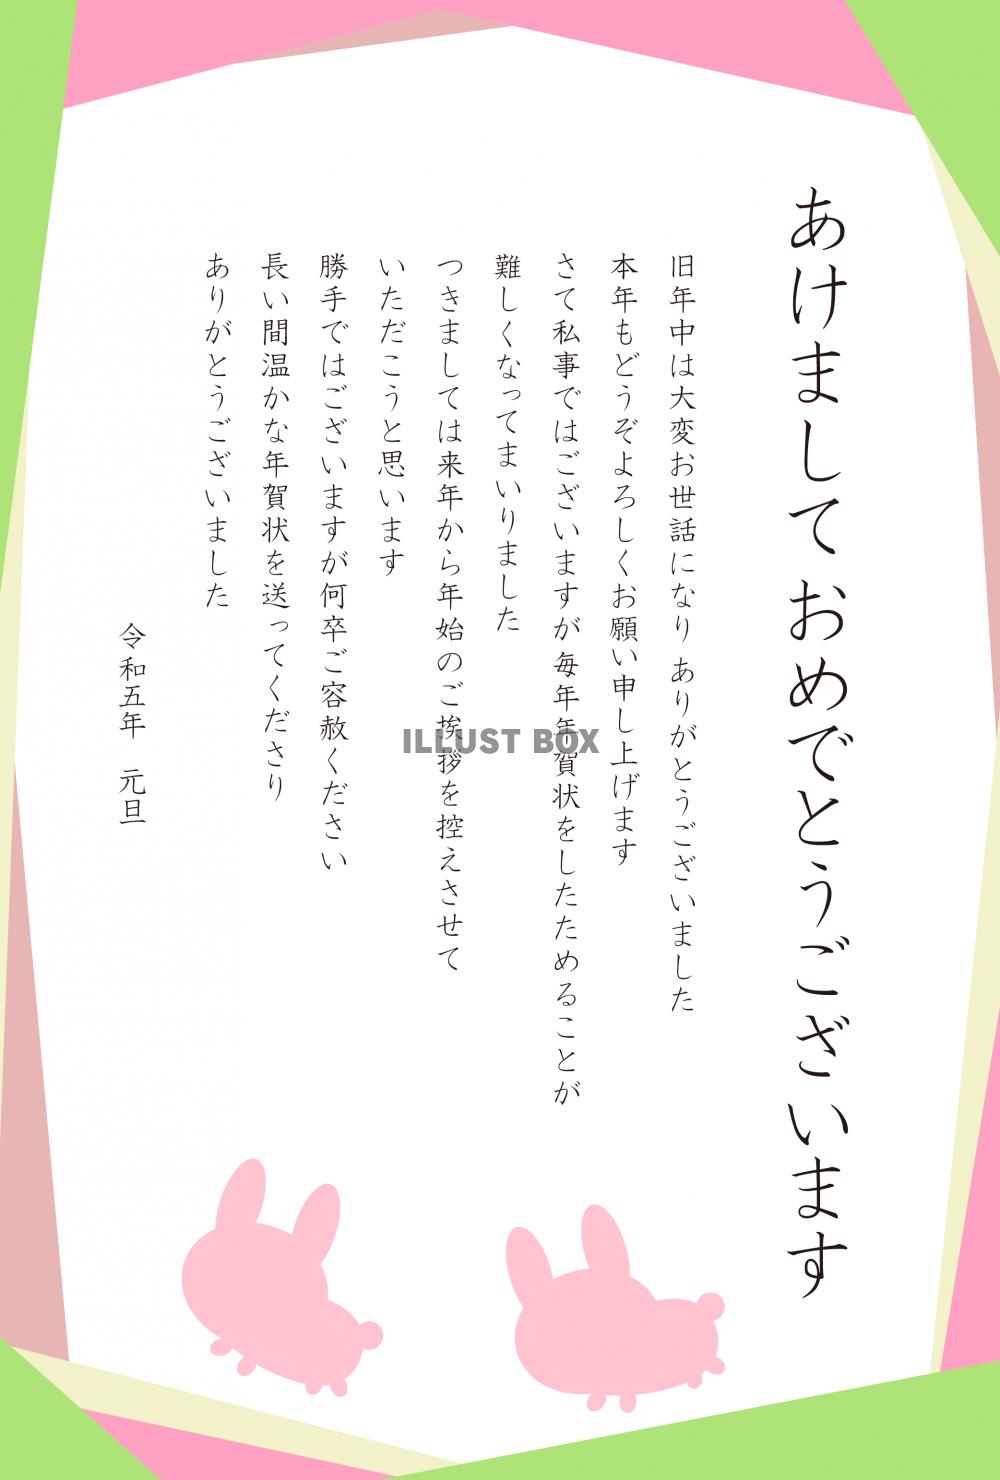 あけまして おめでとうございます
旧年中は大変お世話になり ありがとうございました
本年もどうぞよろしくお願い申し上げます
さて私事ではございますが 毎年年賀状をしたためることが
難しくなってまいりました
つきましては来年から年始のご挨拶を控えさせて
いただこうと思います
勝手ではございますが何卒ご容赦ください
長い間温かな年賀状を送ってくださり
ありがとうございました
令和五年 元旦
ILLUST BOX